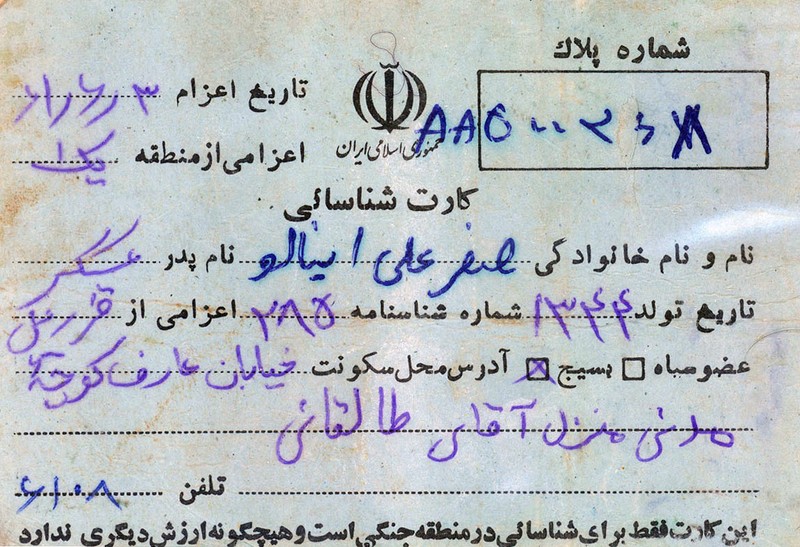 شماره پلاك
تاریخ اعزام ۳
جمهوری اسلامی ایران
اعزامی از منطقه یک
کارت شناسائی
نام و نام خانوادگی صفر علی اینالو نام پدر عسگر
تاریخ تولد ۱۳۴۴ شماره شناسنامه ۲۸۵ اعزامی از
عضو سپاه بسیج آدرس محل سکونت خیابان عارف کوچه
مدنی منزل آقای طالقانی
تلفن ۶۱۰۸
این کارت فقط برای شناسائی در منطقه جنگی است و هیچگونه ارزش دیگری ندارد